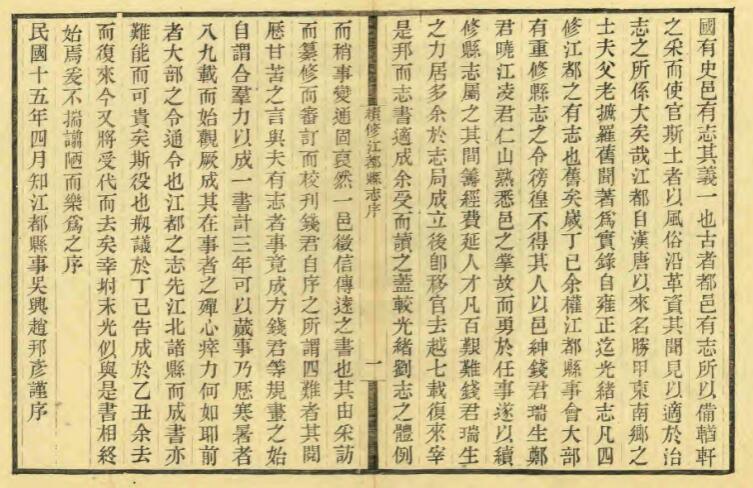 國有史邑有志其義一也古者都邑有志所以備輶軒
之采而使官斯土者以風俗沿革資其聞見以適於治
志之所係大矣哉江都自漢唐以來名勝甲東南鄉之
士夫父老摭羅舊聞著爲實錄自雍正迄光緒志凡四
修江都之有志也舊矣歲丁巳余權江都縣事會大部
有重修縣志之令徬徨不得其人以邑紳錢君瑞生鄭
君曉江凌君仁山熟悉邑之掌故而勇於任事遂以續
修縣志屬之其間籌經費延人才凡百艱難錢君瑞生
之力居多余於志局成立後卽移官去越七載復來宰
是邦而志書適成余受而讀之蓋較光緒劉志之體例
續修江都縣志序
一
而稍事變通固裒然一邑徵信傳遠之書也其由采訪
而纂修而審訂而校刊錢君自序之所謂四難者其閱
歷甘苦之言與夫有志者事竟成方錢君等規畫之始
自謂合羣力以成一書計三年可以蕆事乃歷寒暑者
八九載而始觀厥成其在事者之殫心瘁力何如耶前
者大部之令通令也江都之志先江北諸縣而成書亦
難能而可貴矣斯役也剏議於丁巳告成於乙丑余去
而復來今又將受代而去矣幸坿末光似與是書相終
始焉爰不揣譾陋而樂爲之序
民國十五年四月知江都縣事吳興趙邦彥謹序